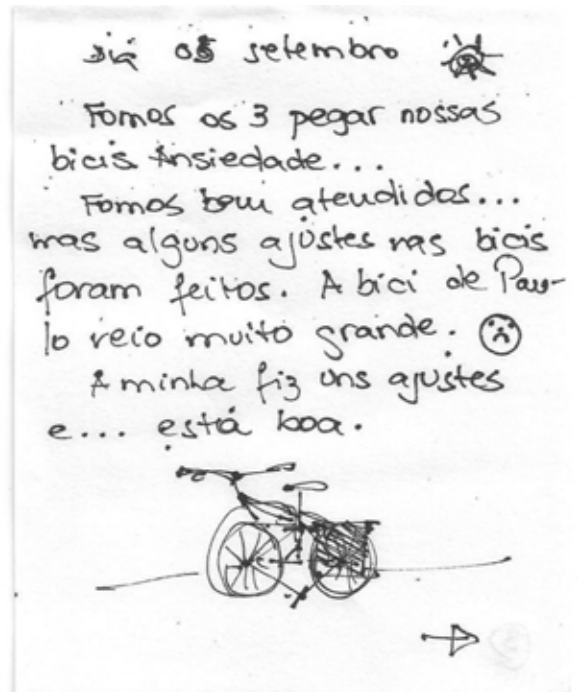 dia 05 setembro
Fomos os 3 pegar nossas
bicis Ansiedade...
Fomos bem atendidos...
mas alguns ajustes nas bicis
foram feitos. A bici de Pau-
lo veio muito grande.
A minha fiz uns ajustes
e... está boa.